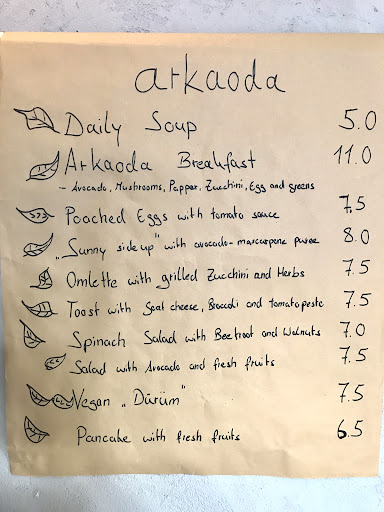 arkaoda
Daily Soup 5.0
Arkaoda Breakfast 11.0
- Avocado, Mushrooms, Pepper, Zucchini, Egg and greens
Poached Eggs with tomato sauce 7.5
„Sunny side up" with avocado-marcarpone puree 8.0
Omlette with grilled Zucchini and Herbs 7.5
Toast with Goat cheese, Broccoli and tomatopeste 7.5
Spinach Salad with Beetroot and Walnuts 7.0
Salad with Avocado and fresh fruits 7.5
Vegan „Dürüm" 7.5
Pancake with fresh fruits 6.5